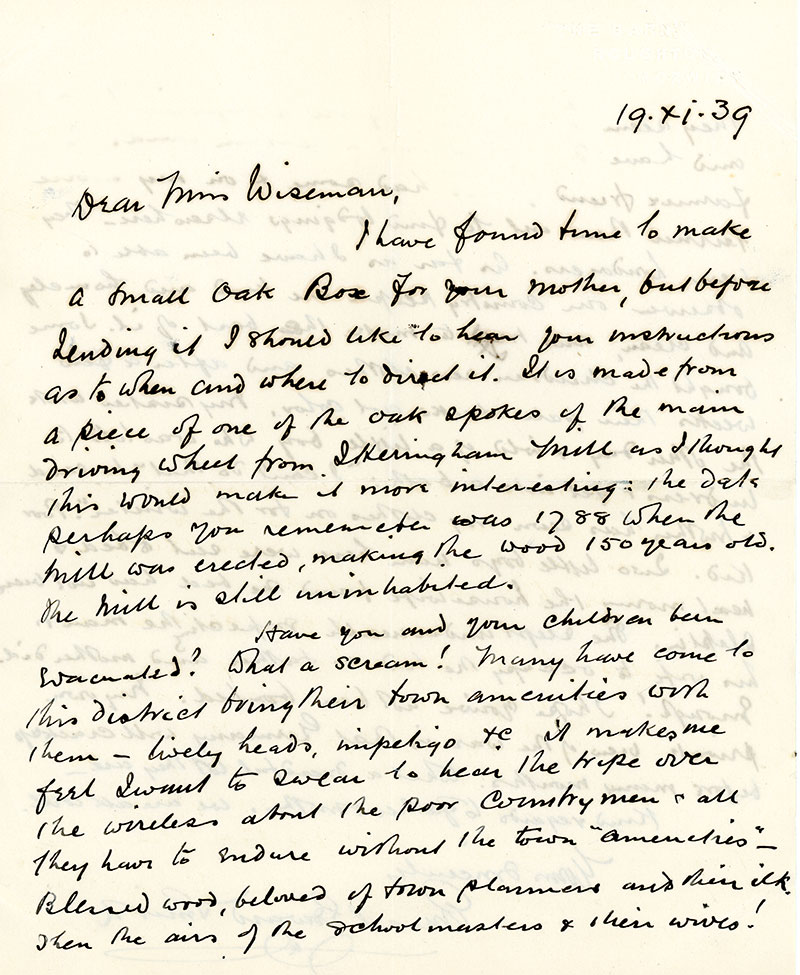 19.xi.39
Dear Miss Wiseman,
I have found time to make
a small Oak Box for your mother, but before
sending it I should like to hear your instructions
as to when and where to direct it. It is made from
a piece of one of the oak spokes of the main
driving wheel from Itteringham Mill as I thought
this would make it more interesting: the date
perhaps you remember was 1788 when the
Mill was erected, making the wood 150 years old.
The Mill is still uninhabited.
Have you and your children been
evacuated? What a scream! Many have come to
this district bring their town amenities with
them – lively heads, impetigo &c it makes me
feel I want to swear to hear the tripe over
the wireless about the poor Countrymen & all
they have to endure without the town "amenities" –
Blessed word, beloved of town planners and their ilk.
Then the airs of the schoolmasters & their wives!